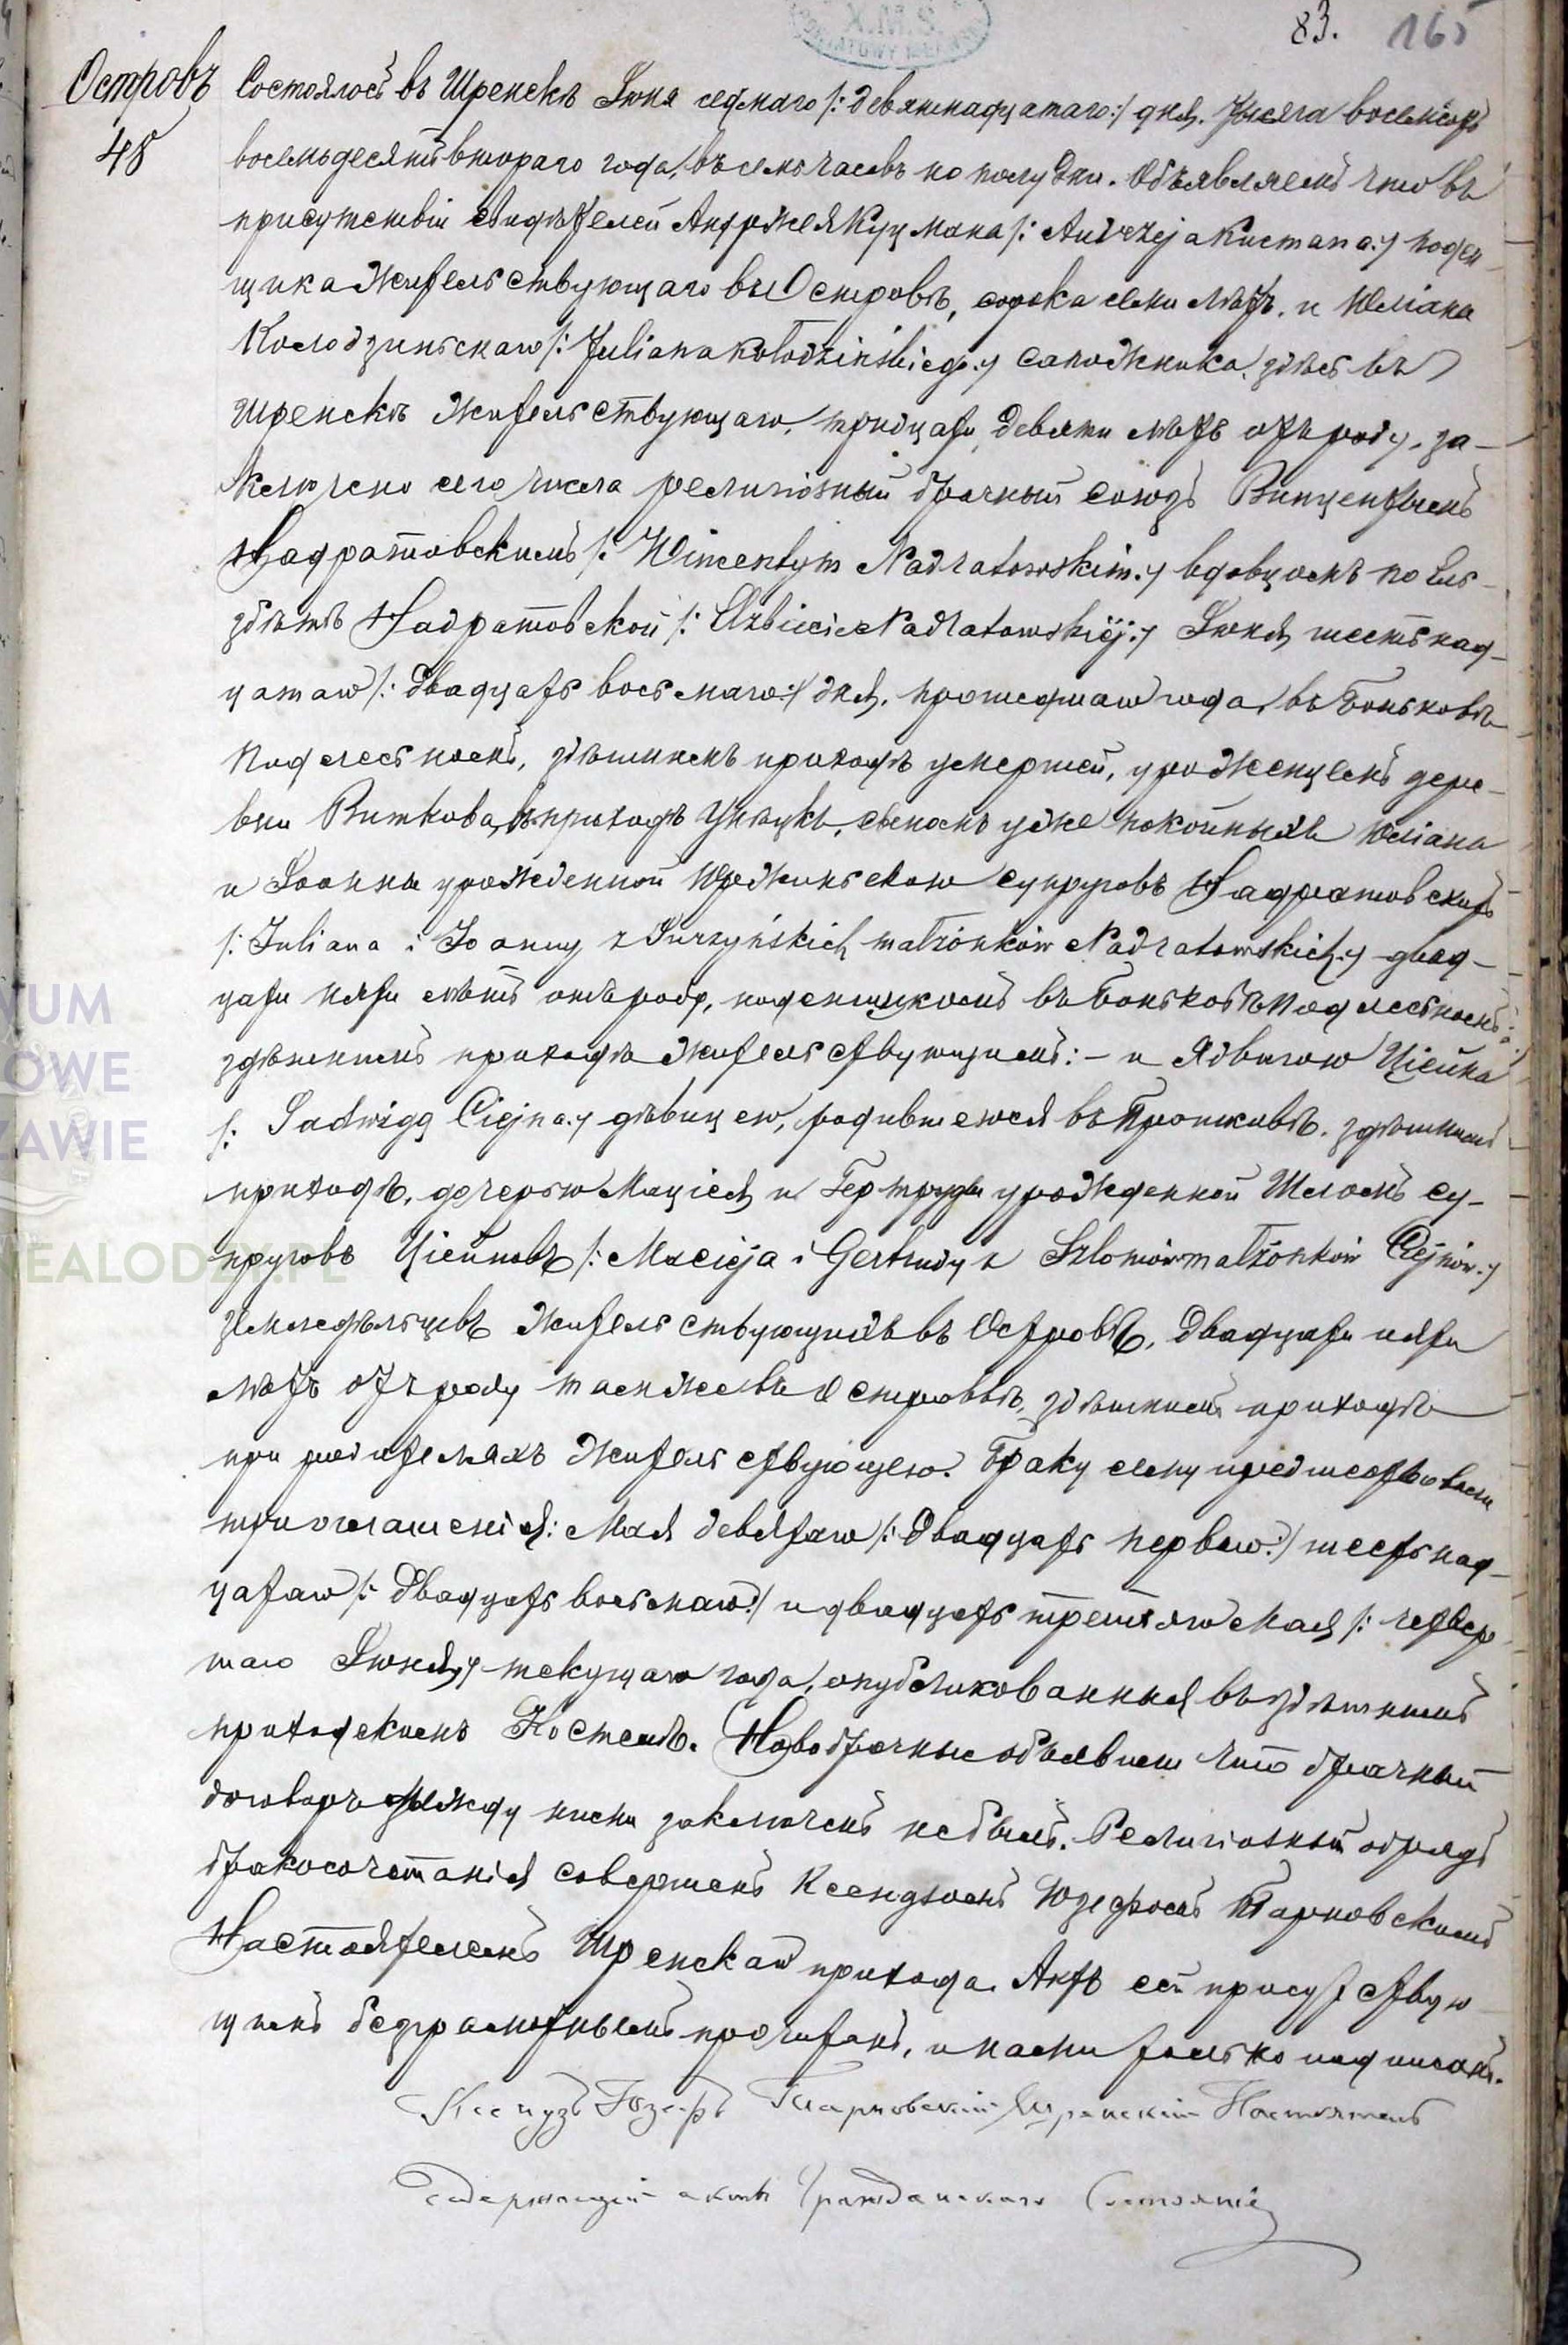 83. 165
Островъ
48
Состоялось въ Шренскѣ Іюня седмаго /: девятнадцатаго :/ дня, тысяча восемьсотъ
восемьдесятъ втораго года, въ семь часовъ по полудни. Объявляемъ что въ
присутствіи свидѣтелей Андржея Куцмана /: Andrzeja Kucmana :/ поден-
щика жительствующаго въ Островѣ, сорока семи лѣтъ, и Юліана
Колодзинскаго /: Juliana Kołodzińskiego :/ сапожника, здѣсь въ
Шренскѣ жительствующаго, тридцати девяти лѣтъ отъ роду, за-
ключено сего числа религіозный брачный союзъ Винцентымъ
Надратовскимъ /: Wincentym Nadratowskim :/ вдовцомъ по Эль-
збѣтѣ Надратовской /: Elzbiecie Nadratowskiéj :/ Іюня шестнад-
цатаго /: двадцать восьмаго :/ дня, прошедшаго года, въ Боньковѣ
Подлесномъ, здѣшнемъ приходѣ умершей, уроженцемъ дере-
вни Виткова, въ приходѣ Унѣцкъ, сыномъ уже покойныхъ Юліана
и Іоанны урожденной Юржинскою супруговъ Надратовскихъ
/: Juliana i Joanny z Jurzyńskich małżonków Nadratowskich :/ двад-
цати пяти лѣтъ отъ роду, поденщикомъ въ Боньковѣ Подлесномъ
здѣшнимъ приходѣ жительствующимъ: – и Ядвигою Цієйна
/: Jadwigą Ciejna :/ дѣвицею, родившеюся въ Прошковѣ, здѣшнимъ
приходѣ, дочерью Мацієя и Гертруды урожденной Шломъ су-
пруговъ Цієйновъ /: Macieja i Gertrudy z Szlomów małżonków Ciejnów :/
земледѣльцевъ жительствующихъ въ Островѣ, двадцати пяти
лѣтъ отъ роду тамже въ Островѣ, здѣшнимъ приходѣ
при родителяхъ жительствующею. Браку сему предшествовали
три оглашенія: Мая девятаго /: двадцать перваго :/ шестнад-
цатаго /: двадцать восьмаго :/ и двадцать третьяго Мая /: четвер-
таго Іюня :/ текущаго года, опубликованныя въ здѣшнимъ
приходскомъ Костелѣ. Новобрачные объявили что брачный
договоръ между ними заключенъ небылъ. Религіозный обрядъ
бракосочетанія совершенъ Ксендзомъ Юзефомъ Тарновскимъ
Настоятелемъ Шренскаго прихода. Актъ сей присутствую-
щимъ безграмотнымъ прочитанъ, и нами только подписанъ.
Ксендзъ Юзефъ Тарновскій Шренскій Настоятель
Содержащій акты Гражданскаго Состоянія